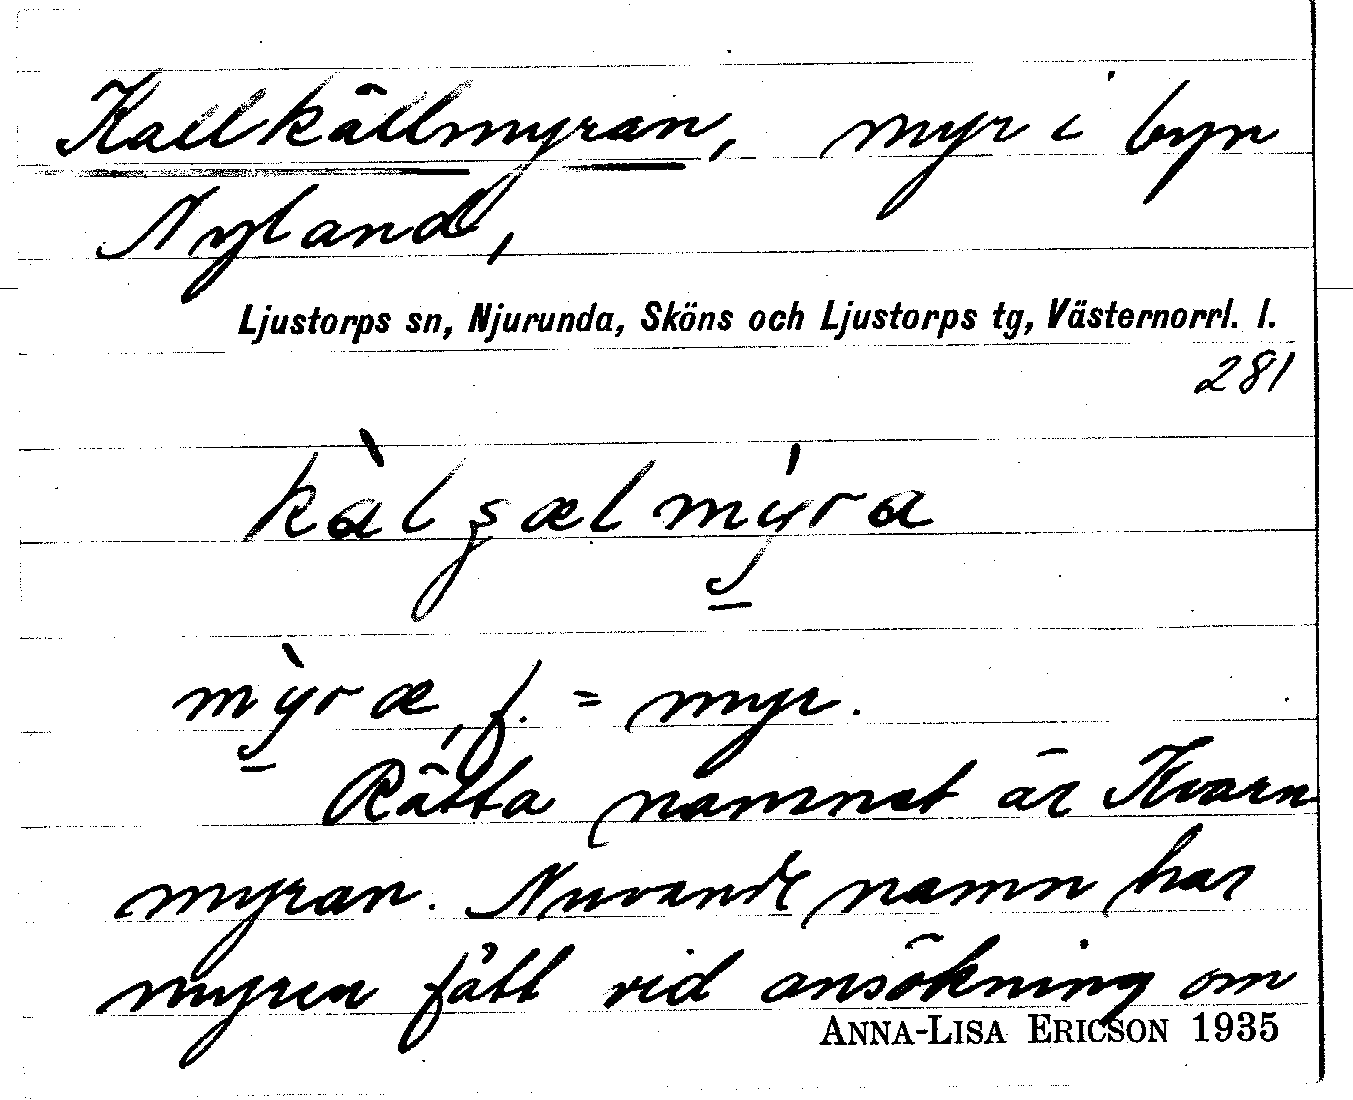 Kallkällmyran, myr i byn
Nyland,
Ljustorps sn, Njurunda, Sköns och Ljustorps tg, Västernorrl. l.
281
kàlʂælmýra
mỳræ, f. = myr.
Rätta namnet är Kvarn
myran. Nuvarande namn har
myren fått vid ansökning om
ANNA-LISA ERICSON 1935